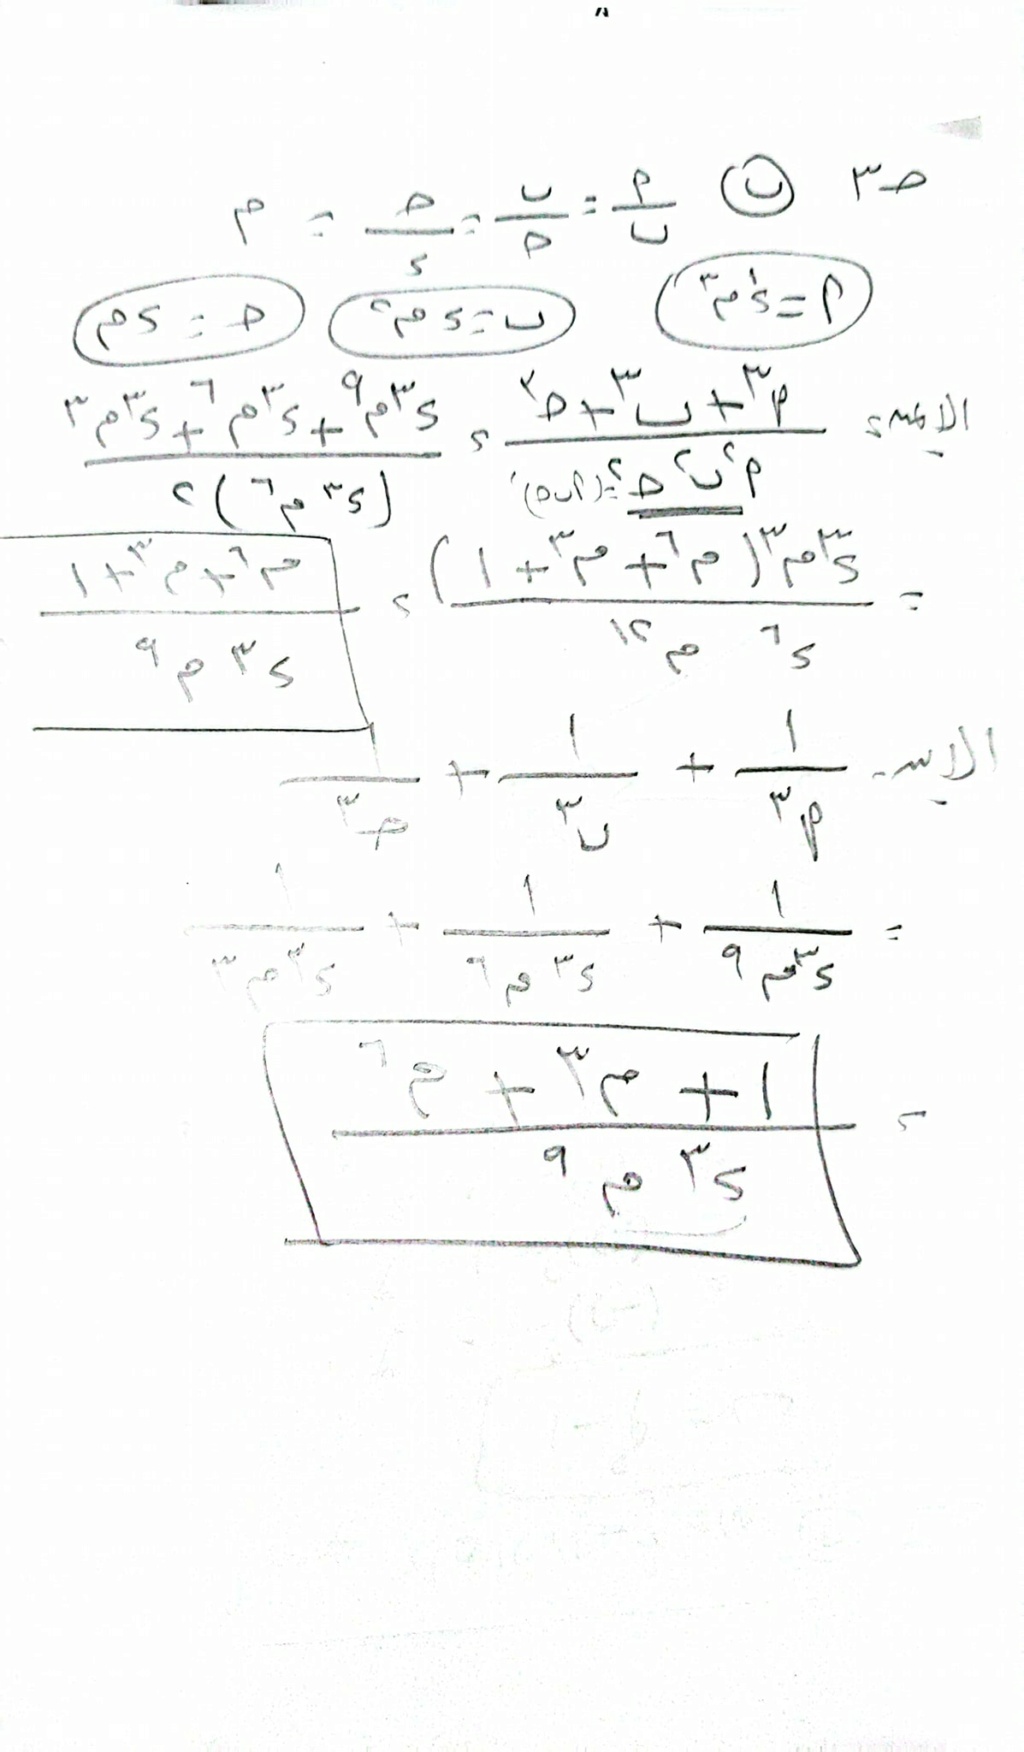 حـ٣ (ب) ا/ب = ب/حـ = حـ/د = م
ا = د م^٣ ب = د م^٢ حـ = د م
الايمن = (ا^٣ + ب^٣ + حـ^٣)/(ا^٢ ب^٢ حـ^٢ = (ا ب حـ)^٢) = (د^٣ م^٩ + د^٣ م^٦ + د^٣ م^٣)/(د^٣ م^٦)^٢
= د^٣ م^٣ (م^٦ + م^٣ + ١)/(د^٦ م^١٢) = (م^٦ + م^٣ + ١)/(د^٣ م^٩)
١/ا^٣ + ١/ب^٣ + ١/حـ^٣
= ١/(د^٣ م^٩) + ١/(د^٣ م^٦) + ١/(د^٣ م^٣)
= (١ + م^٣ + م^٦)/(د^٣ م^٩)